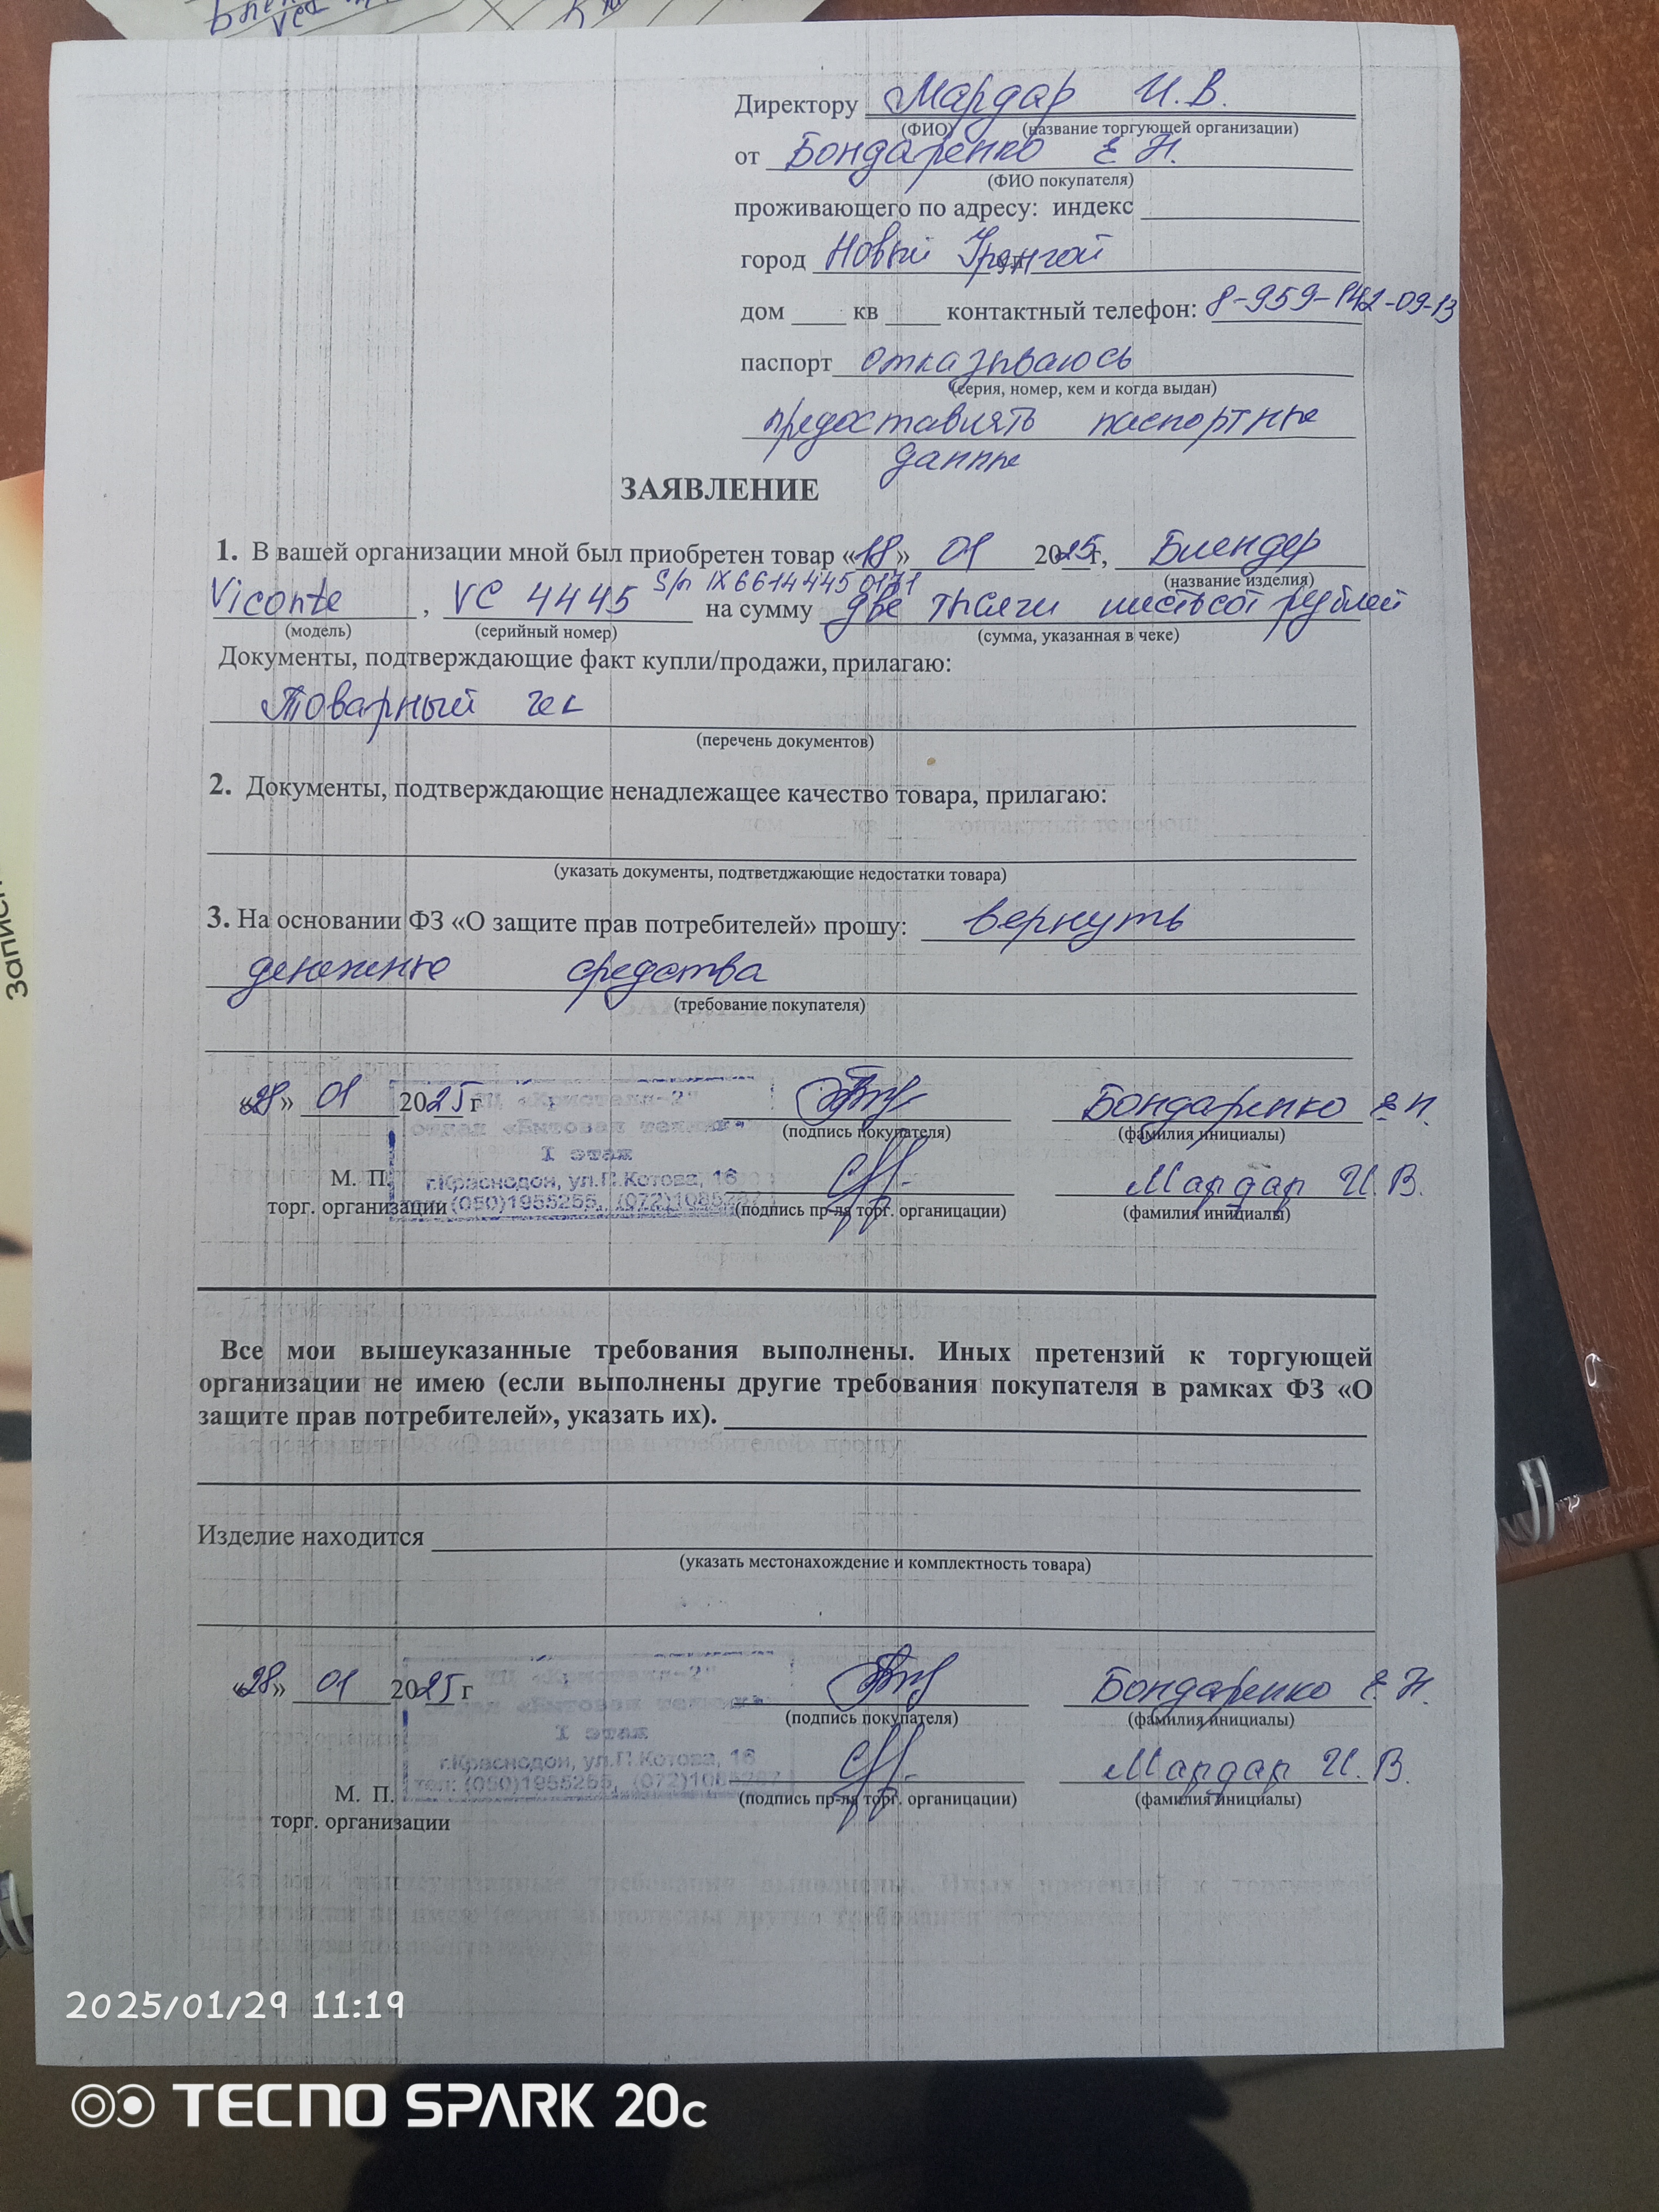 Директору Мардар И.В.
(ФИО) (название торгующей организации)
от Бондаренко Е Н.
(ФИО покупателя)
проживающего по адресу: индекс
город Новый Уренгой
дом кв контактный телефон: 8-959-142-09-13
паспорт отказываюсь
(серия, номер, кем и когда выдан)
предоставлять паспортные
данные
ЗАЯВЛЕНИЕ
1. В вашей организации мной был приобретен товар «18» 01 2025г, Блендер
(название изделия)
S/n IX6614445 0171
Viconte , VC 4445 на сумму две тысячи шестьсот рублей
(модель) (серийный номер) (сумма, указанная в чеке)
Документы, подтверждающие факт купли/продажи, прилагаю:
Товарный чек
(перечень документов)
2. Документы, подтверждающие ненадлежащее качество товара, прилагаю:
(указать документы, подтветджающие недостатки товара)
3. На основании ФЗ «О защите прав потребителей» прошу: вернуть
денежные средства
(требование покупателя)
«28» 01 2025г Бондаренко Е Н.
(подпись покупателя) (фамилия инициалы)
ТЦ «Кристалл-2"
отдел «Бытовая техника»
I этаж
г.Краснодон, ул.Г.Котова, 16
(050)1955255, (072)1085287
М. П. Мардар И.В.
торг. организации (подпись пр-ля торг. органицации) (фамилия инициалы)
Все мои вышеуказанные требования выполнены. Иных претензий к торгующей
организации не имею (если выполнены другие требования покупателя в рамках ФЗ «О
защите прав потребителей», указать их).
Изделие находится
(указать местонахождение и комплектность товара)
«28» 01 2025г Бондаренко Е.Н.
(подпись покупателя) (фамилия инициалы)
ТЦ «Кристалл-2"
отдел «Бытовая техника»
I этаж
г.Краснодон, ул.Г.Котова, 16
тел: (050)1955255, (072)1085287
М. П. Мардар И.В.
торг. организации (подпись пр-ля торг. органицации) (фамилия инициалы)
2025/01/29 11:19
TECNO SPARK 20c